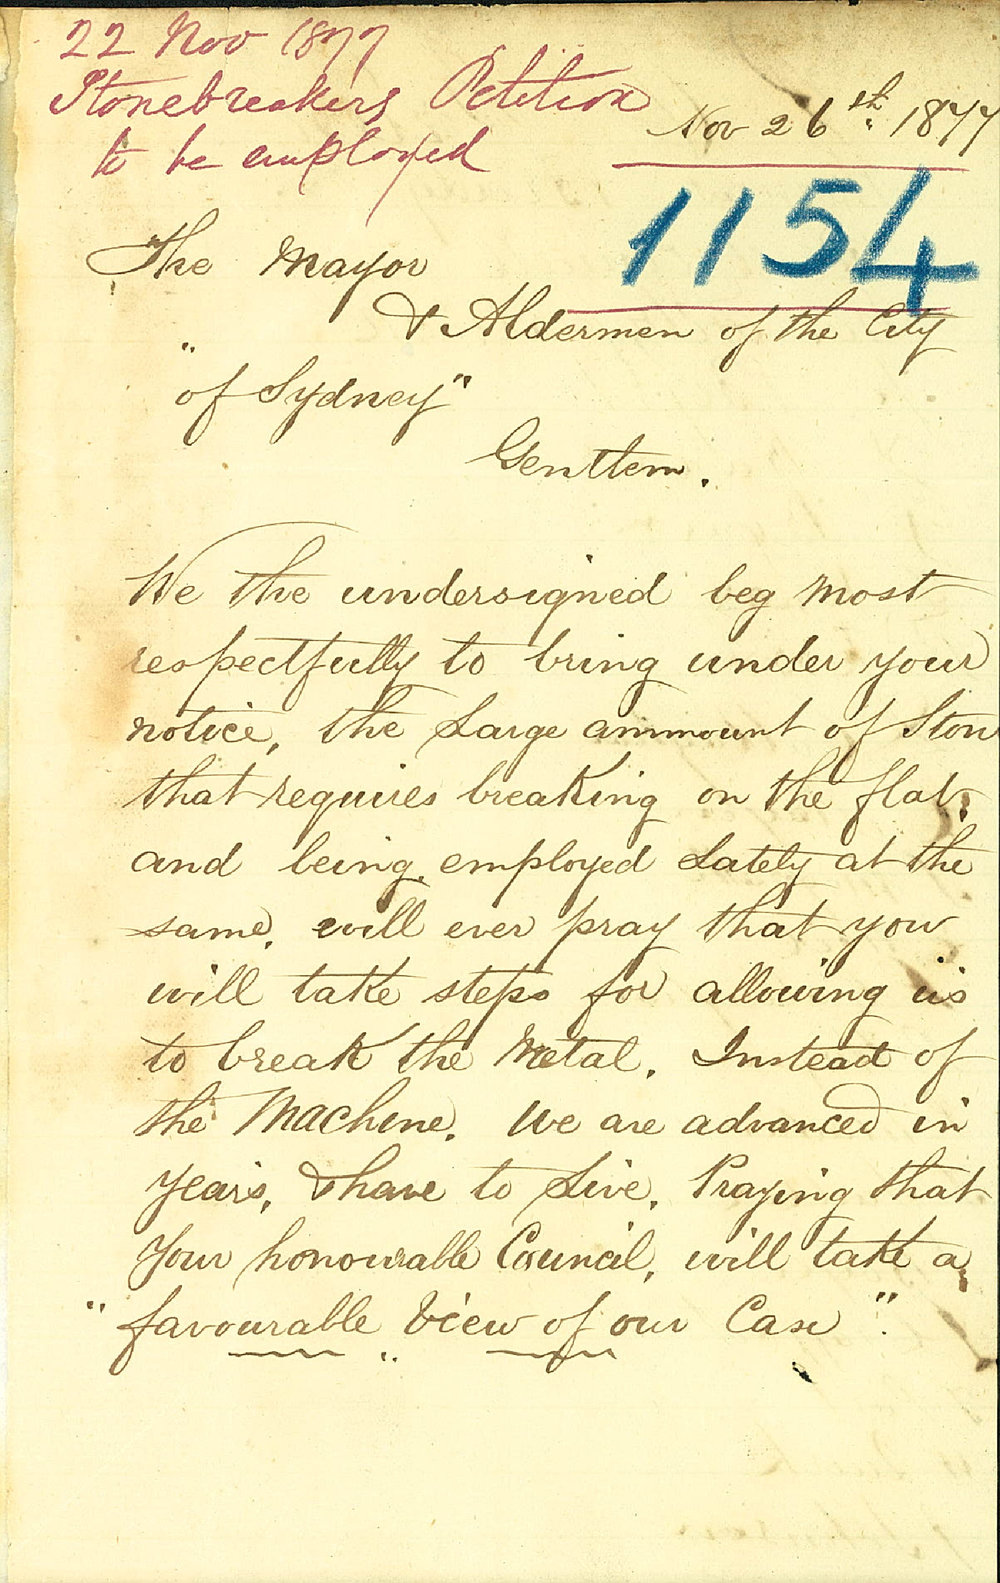 22 Nov 1877
Stonebreakers Petition
to be employed
Nov 26th 1877
1154
The Mayor
& Aldermen of the City
"of Sydney"
Genttem.
We the undersigned beg most
respectfully to bring under your
notice, the Large ammount of Ston
that requires breaking on the flat,
and being, employed Lately at the
same, will ever pray that you
will take steps for allowing us
to break the Metal. Instead of
the Machine. We are advanced in
years, & have to Live. Praying that
Your honourable Council, will take a
"favourable View of our Case".